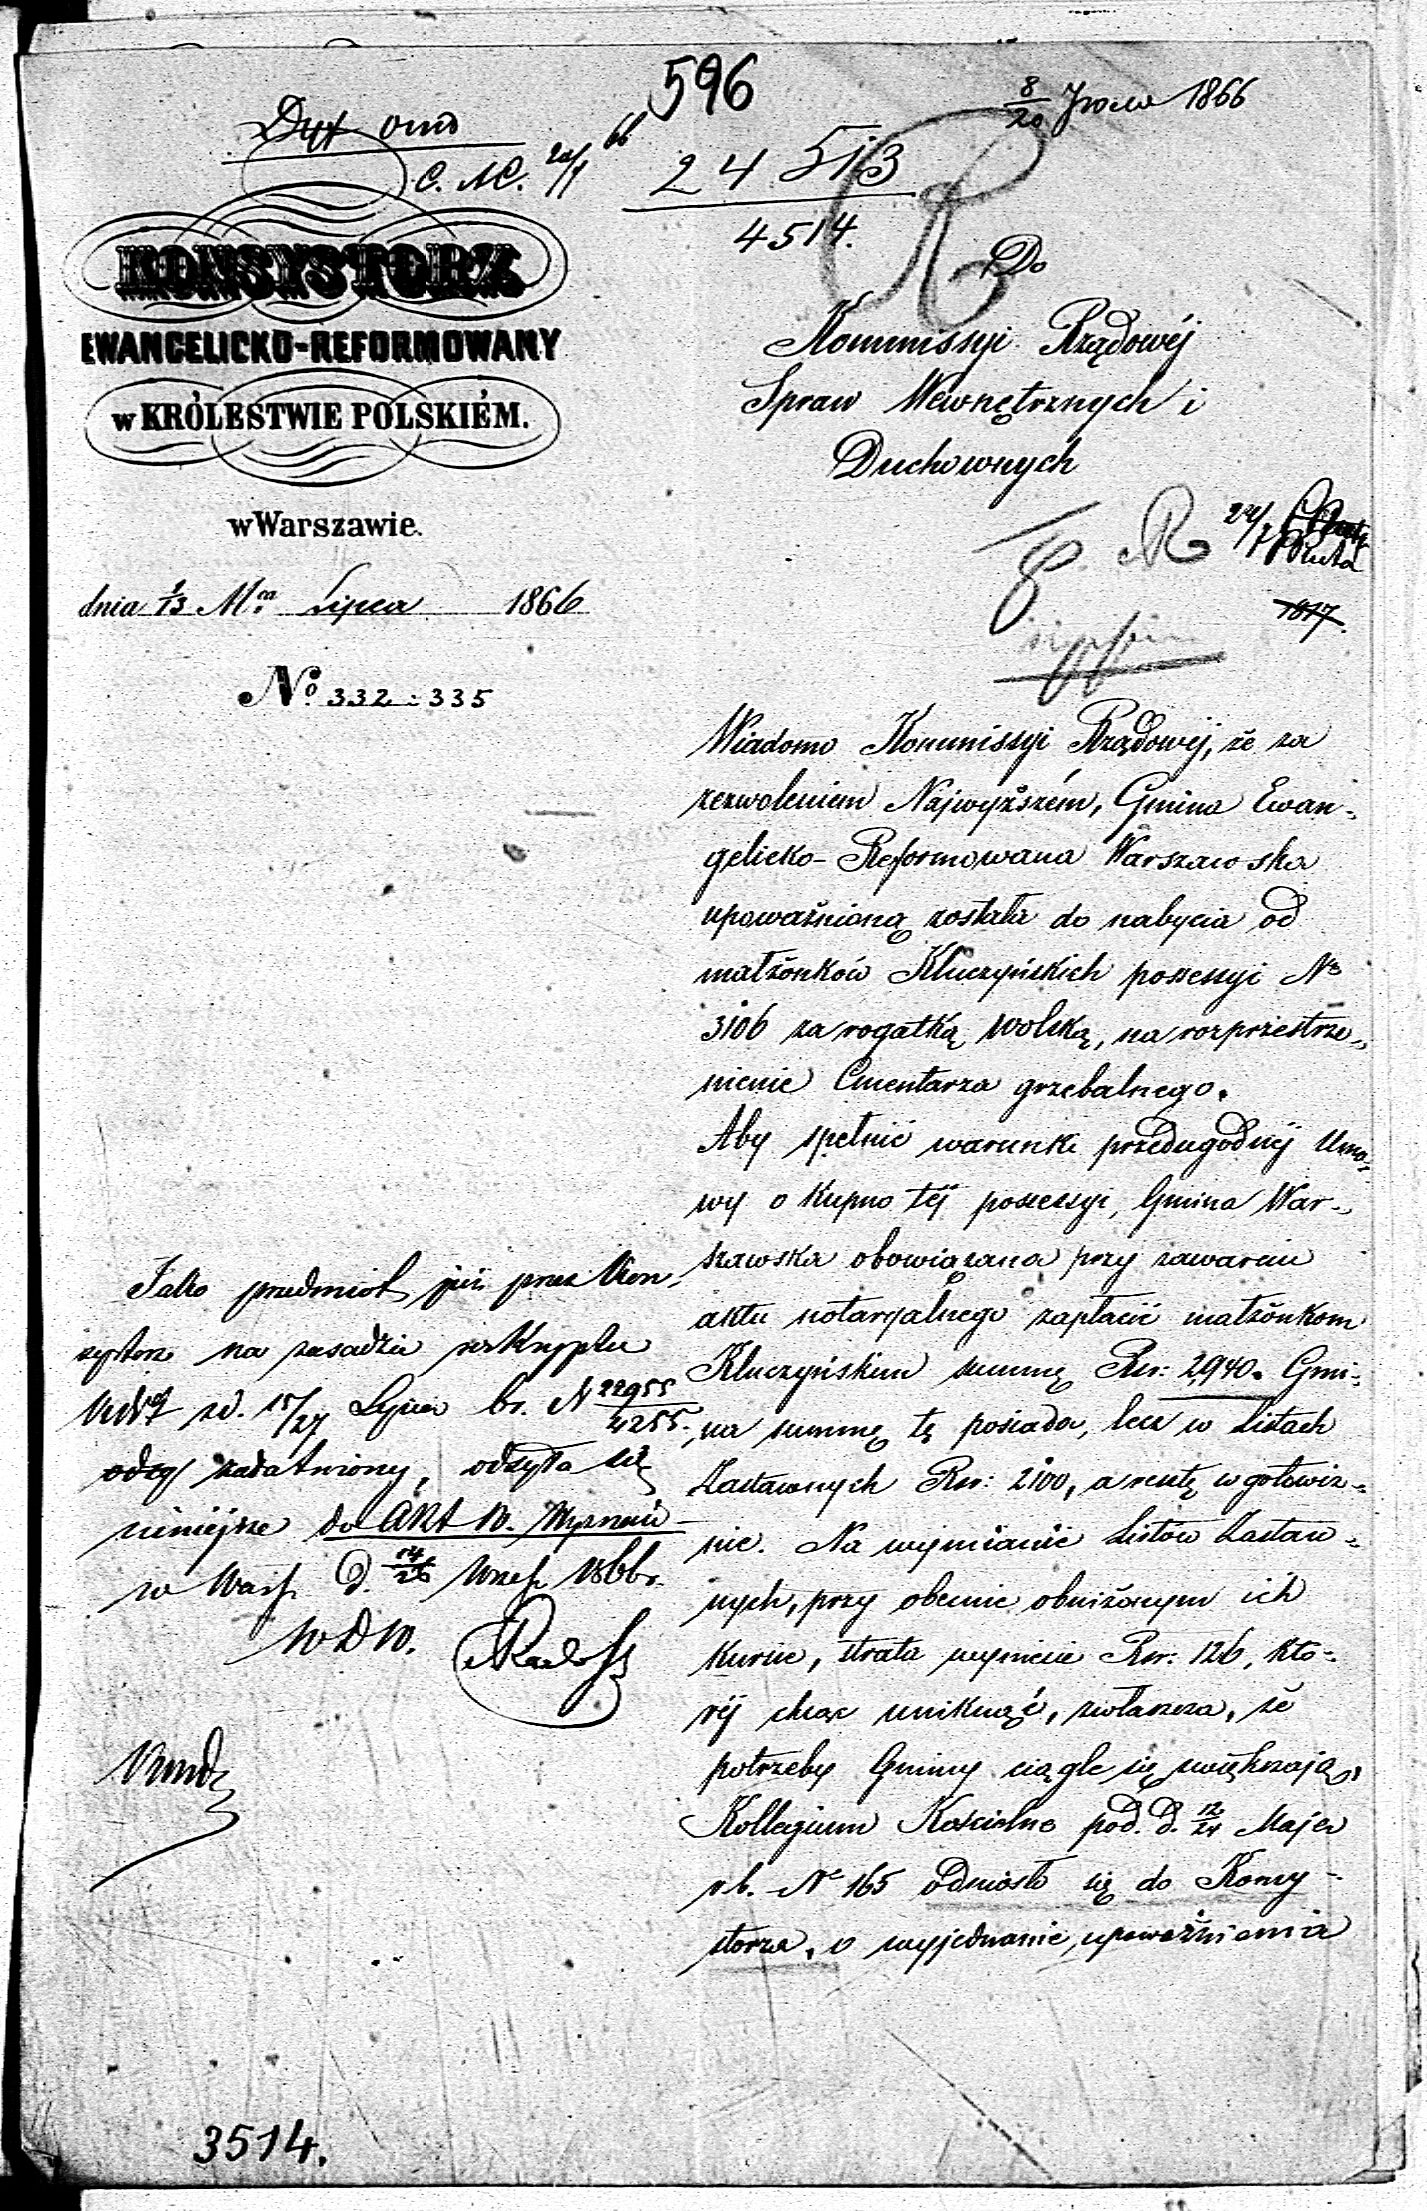 596
8/20 1866
C. 24/7 66
24513
4514.
KONSYSTORZ
EWANGELICKO-REFORMOWANY
w KRÓLESTWIE POLSKIÉM.
w Warszawie.
dnia 1/13 M.ca Lipca 1866
No. 332 : 335
Do
Kommissyi Rządowéj
Spraw Wewnętrznych i
Duchownych
24/7
1017.
Wiadomo Kommissyi Rządowéj, że za
zezwoleniem Najwyższém, Gmina Ewan-
gelicko-Reformowana Warszawska
upoważnioną została do nabycia od
małżonków Kluczyńskich possessyi No
3106 za rogatką Wolską, na rozprzestrze-
nienie Cmentarza grzebalnego.
Aby spełnić warunki przedugodnéj Umo-
wy o Kupno téj possessyi, Gmina War-
szawska obowiązana przy zawarciu
aktu notaryalnego zapłacić małżonkom
Kluczyńskim summę Rsr: 2,940. Gmi-
na summę tę posiada, lecz w Listach
Zastawnych Rsr: 2100, a resztę w gotowiz-
nie. Na wymianie Listów Zastaw-
nych, przy obecnie obniżonym ich
kursie, strata wyniesie Rsr: 126, któ-
réj chcąc uniknąć, zwłaszcza, że
potrzeby Gminy ciągle się zwiększają,
Kollegium Kościelne pod. d. 12/24 Maja
r.b. No 165 odniosło się do Konsy-
storza, o wyjednanie upoważnienia
Jako przedmiot już przez Kon-
systorz na zasadzie reskryptu
z d. 15/27 Lipca br. N 22955/4255.
załatwiony, odsyła się
niniejsze do Akt W. Wyznań
w Warsz. d. 14/26 Wrześ. 1866 r.
W D W.
3514.